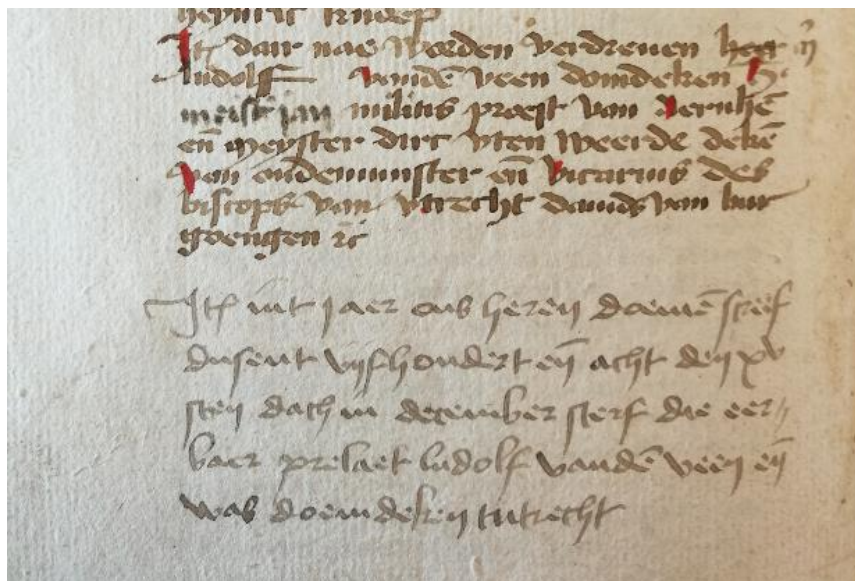 heynric knoep
Itē dair nae worden verdreuen heer m̄
ludolff vandē veen domdeken H.
meistē jan militis proest van Aernhē
eñ meyster dirc vten weerde dekē
van oudemunster eñ vicarius des
biscops van vtrecht dauids van bur
goengen ꝛc̄
Itē int jaer ons heren doemē screef
dusent vijfhondert eñ acht den xv
sten dach in december sterf die eer//
baer prelaet ludolf vandē veen eñ
was doemdeken tutrecht